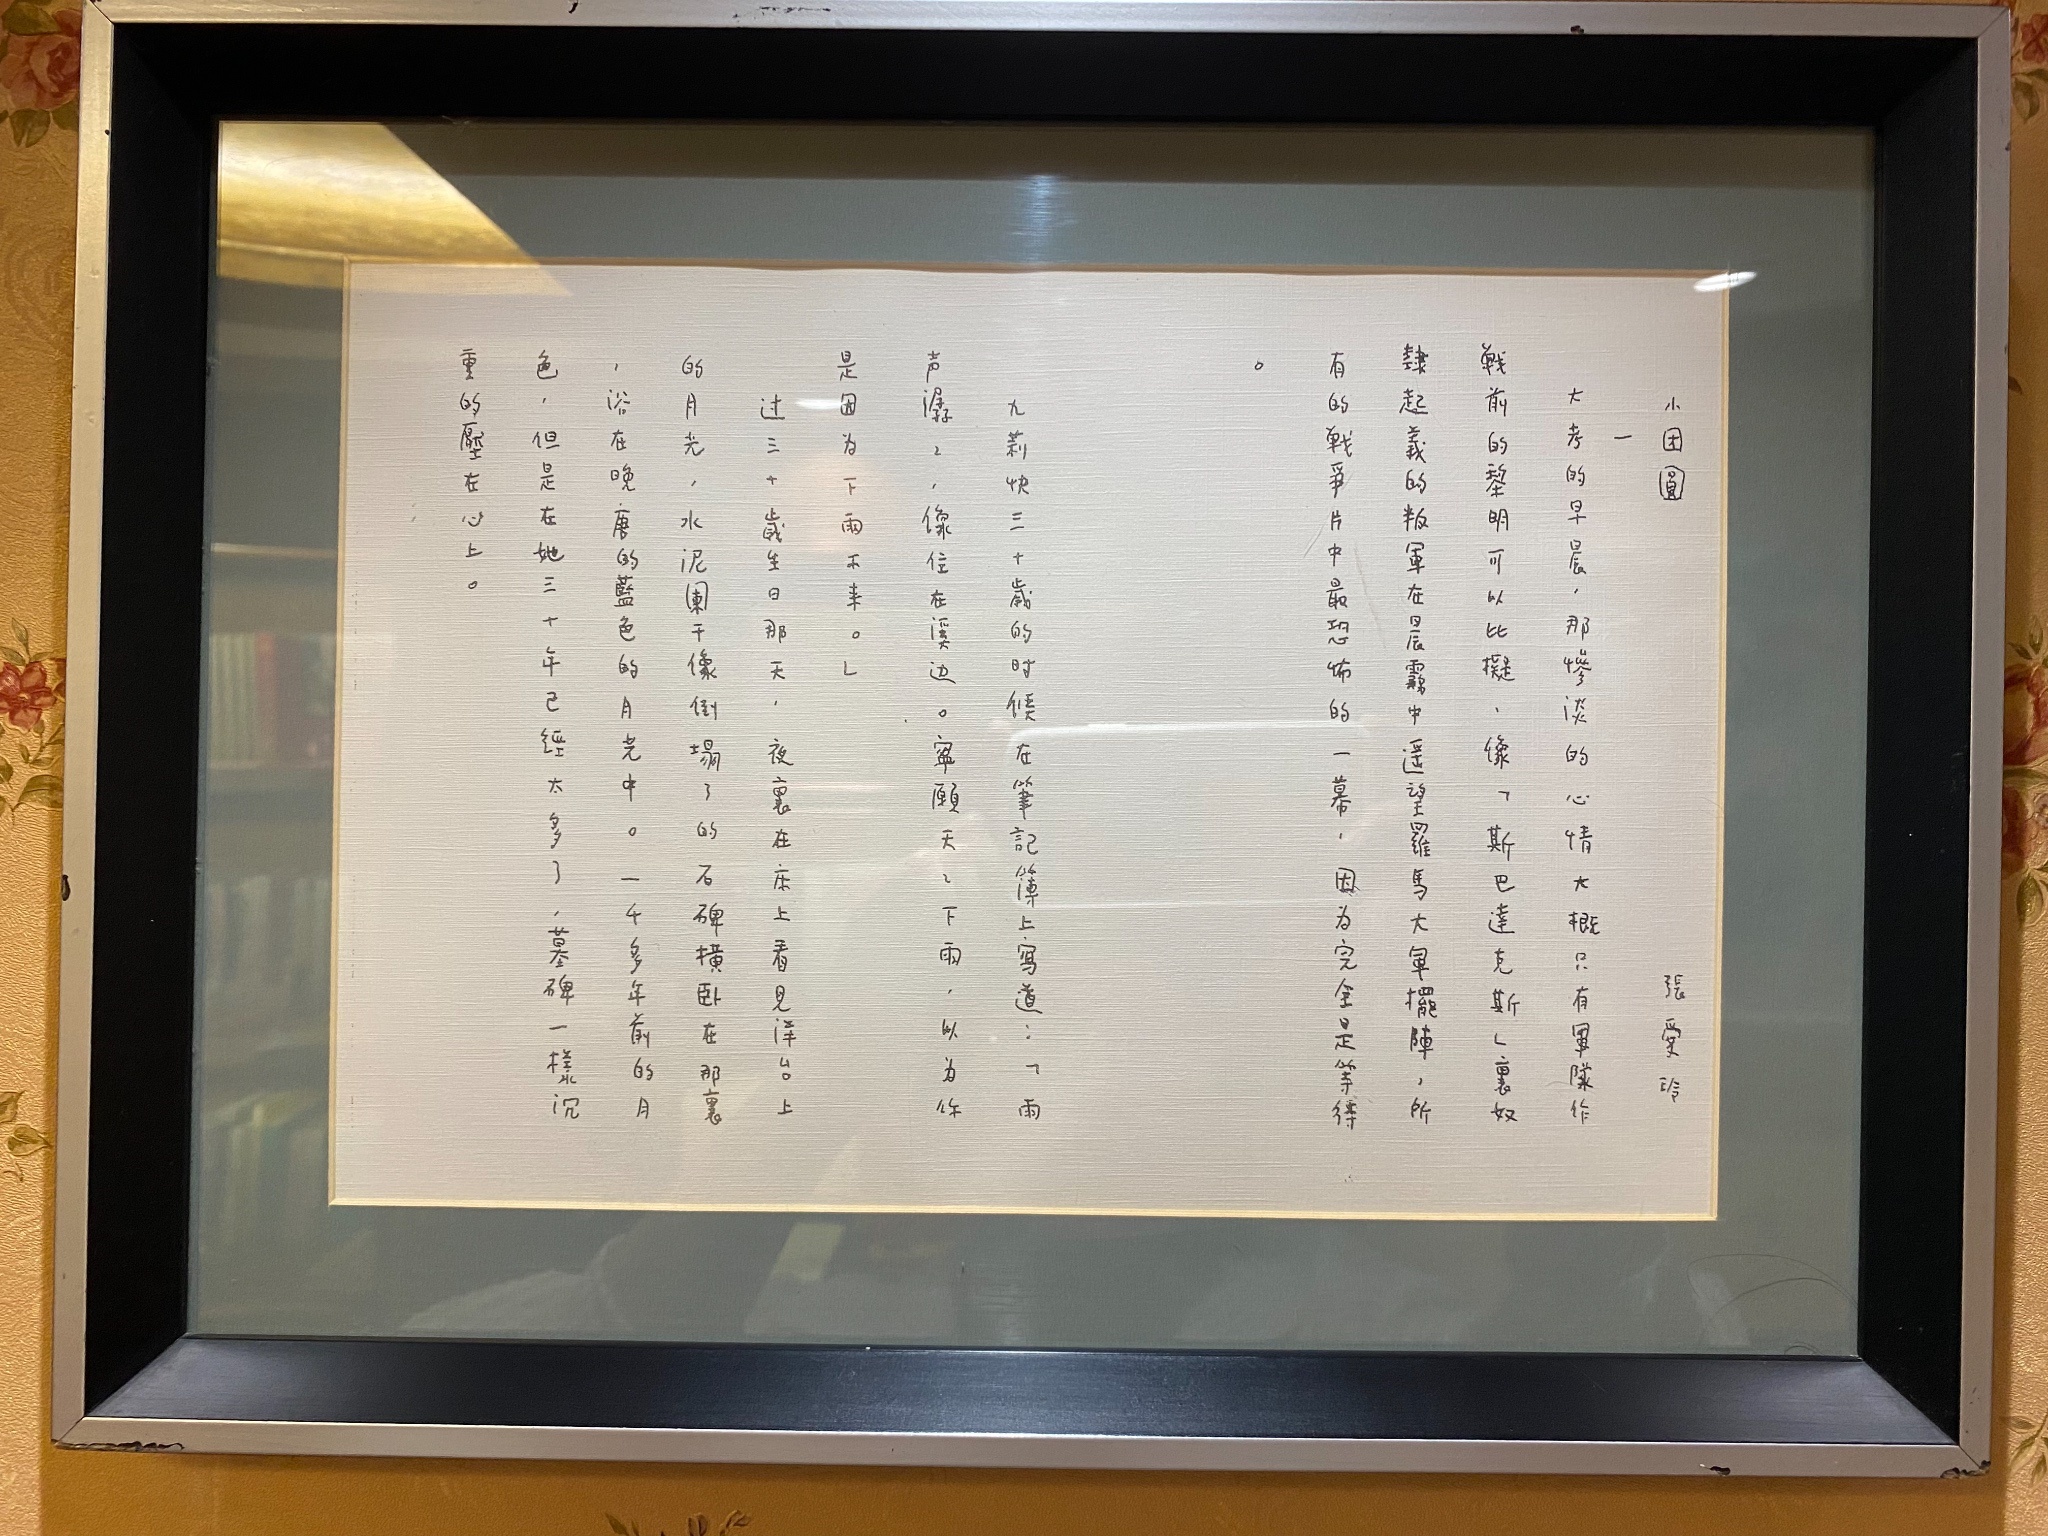 小团圓 張愛玲
一
大考的早晨，那慘淡的心情大概只有軍隊作
戰前的黎明可以比擬，像「斯巴達克斯」裏奴
隸起義的叛軍在晨霧中遥望羅馬大軍擺陣，所
有的戰爭片中最恐怖的一幕，因为完全是等待
。
九莉快三十歲的时候在筆記簿上寫道：「雨
声潺々，像住在溪边。寧願天々下雨，以为你
是因为下雨不来。」
过三十歲生日那天，夜裏在床上看見洋台上
的月光，水泥闌干像倒塌了的石碑橫臥在那裏
，浴在晚唐的藍色的月光中。一千多年前的月
色，但是在她三十年已經太多了，墓碑一樣沉
重的壓在心上。